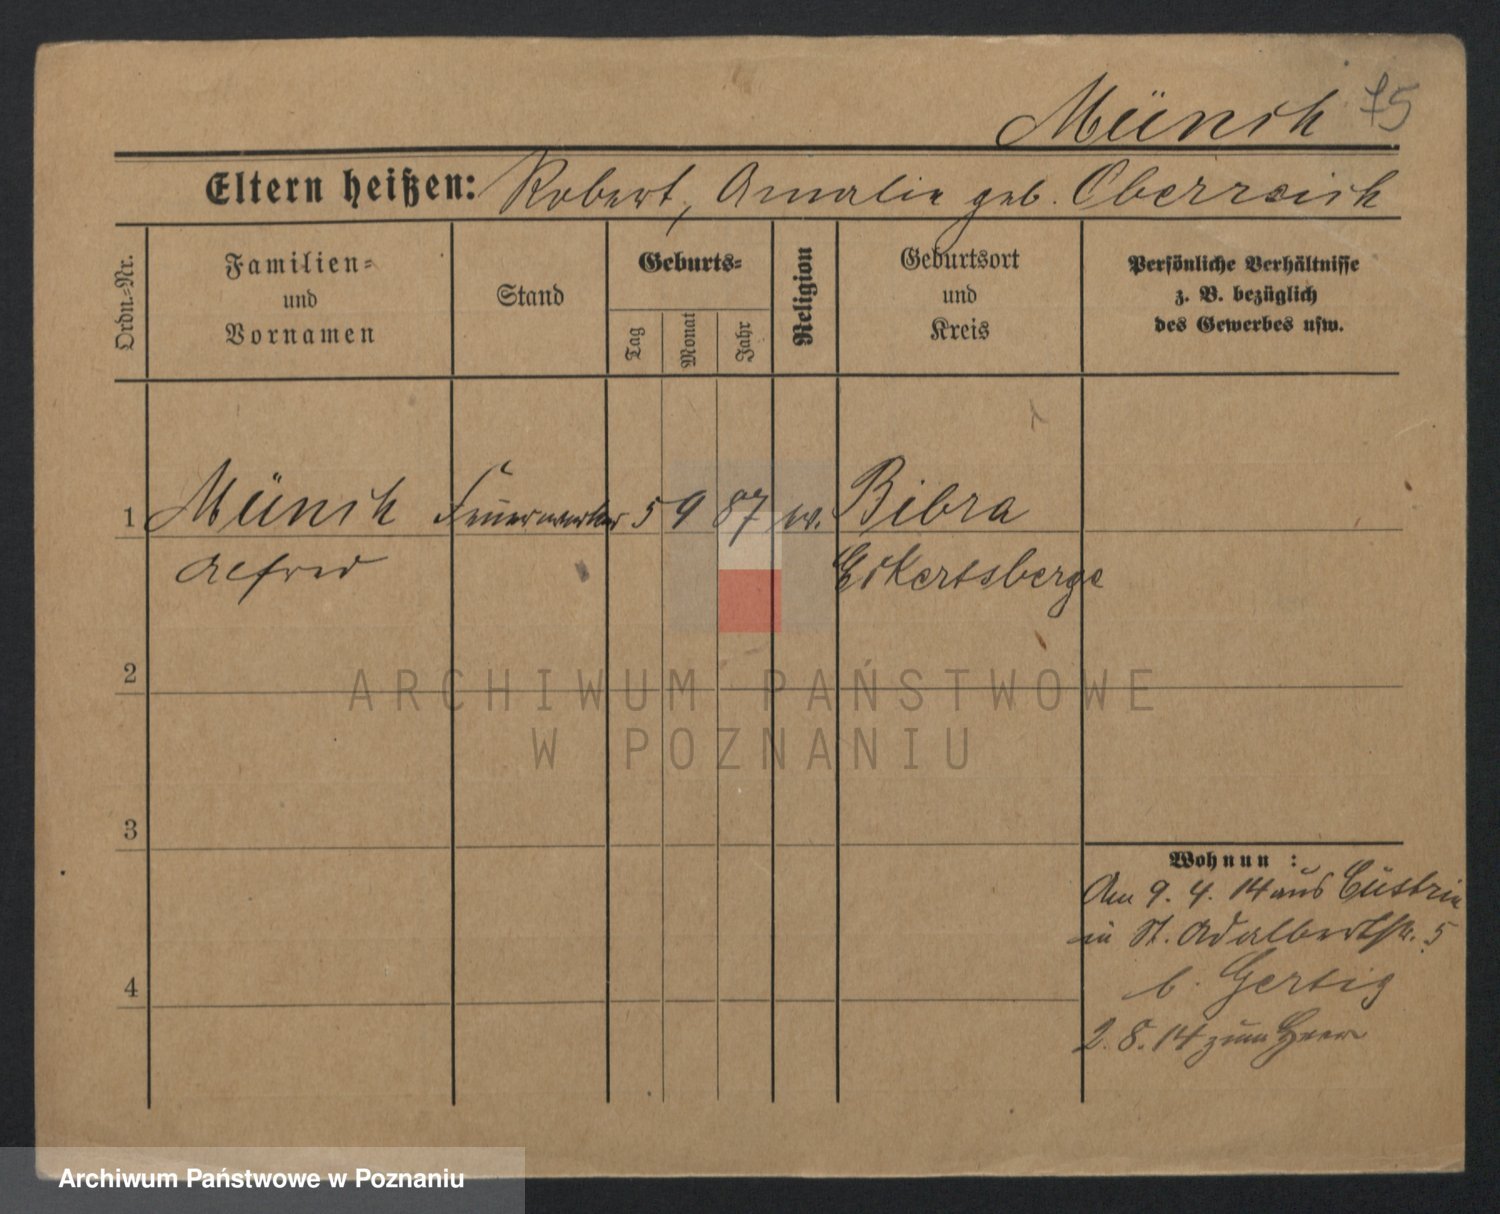 Münch 75
Eltern heißen: Robert, Amalie geb. Oberreich
Ordn.-Nr.
Familien-
und
Vornamen
Stand
Geburts-
Tag
Monat
Jahr
Religion
Geburtsort
und
Kreis
Persönliche Verhältnisse
z. B. bezüglich
des Gewerbes usw.
1 Münch Feuerwerker 5 9 87 Bibra
Alfred Eckartsberge
2
ARCHIWUM PAŃSTWOWE
W POZNANIU
3
Wohnun :
Am 9. 4. 14 aus Cüstrin
in St. Adalbertstr. 5
b. Gertig
4
2. 8. 14 zum Heere
Archiwum Państwowe w Poznaniu